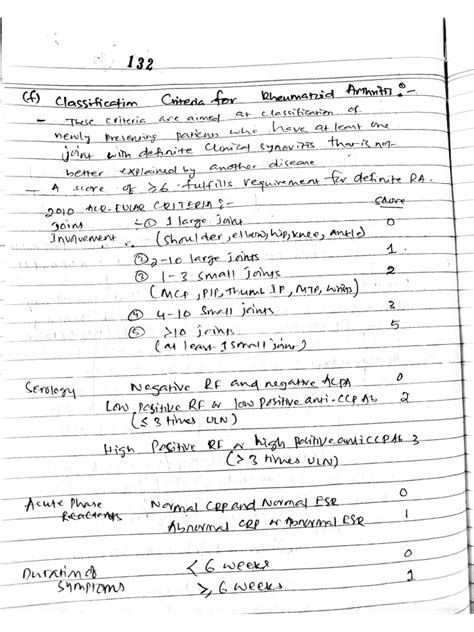 132
(f) Classification Criteria for Rheumatoid Arthritis :-
- These criteria are aimed at classification of
newly presenting patients who have at least one
joint with definite clinical synovitis that is not
better explained by another disease.
- A score of ≥6 fulfills requirement for definite RA.
2010 ACR-EULAR CRITERIA :- Score
Joint ① 1 large joint 0
Involvement (shoulder, elbow, hip, knee, ankle)
② 2-10 large joints 1
③ 1-3 small joints 2
(MCP, PIP, Thumb IP, MTP, wrists)
④ 4-10 small joints 3
⑤ >10 joints 5
(at least 1 small joint)
Serology Negative RF and negative ACPA 0
Low Positive RF or low positive anti-CCP Ab 2
(≤ 3 times ULN)
High Positive RF or high positive anti CCP Ab 3
(> 3 times ULN)
Acute Phase Normal CRP and Normal ESR 0
Reactants Abnormal CRP or Abnormal ESR 1
Duration of < 6 weeks 0
Symptoms ≥ 6 weeks 1